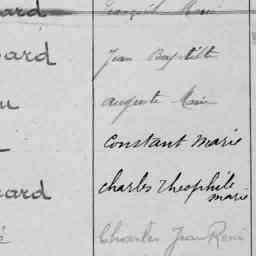 ard Marie
ard Jean Baptiste
u Auguste Marie
Constant Marie
ard Charles Theophile
Marie
é Charles Jean René